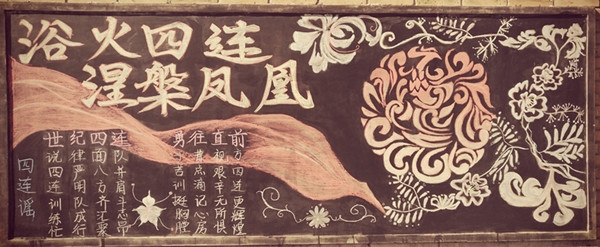 浴火四连
涅槃凤凰
四连谣
世说四连训练忙
纪律严明队成行
四面八方齐汇聚
连队并肩斗志昂
勇于苦训挺胸膛
往昔点滴记心房
直视艰辛无所惧
前方四连更辉煌